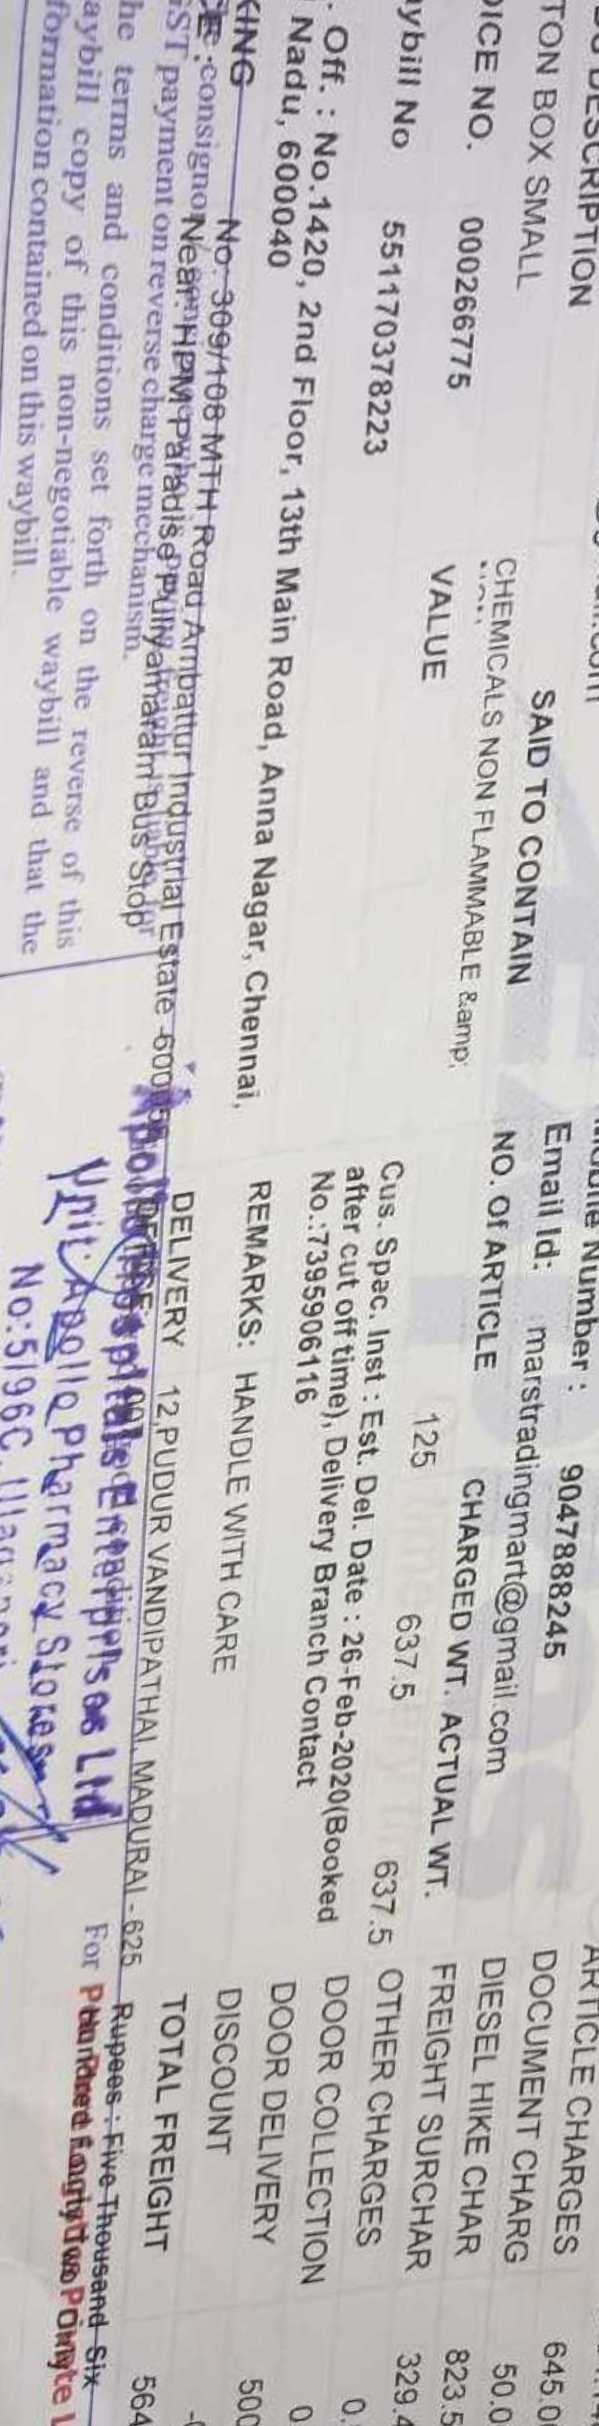 DESCRIPTION
TON BOX SMALL
SAID TO CONTAIN
CHEMICALS NON FLAMMABLE &amp;
OICE NO. 000266775
VALUE
aybill No 551170378223
Off. : No.1420, 2nd Floor, 13th Main Road, Anna Nagar, Chennai,
Nadu, 600040
KING No: 309/108 MTH Road Ambattur Industrial Estate
Near HPM Paradise Puliyamaram Bus Stop
consignor
GST payment on reverse charge mechanism.
he terms and conditions set forth on the reverse of this
aybill copy of this non-negotiable waybill and that the
formation contained on this waybill.
Number : 9047888245
Email Id: marstradingmart@gmail.com
NO. Of ARTICLE CHARGED WT. ACTUAL WT.
125 637.5 637.5
Cus. Spac. Inst : Est. Del. Date : 26-Feb-2020(Booked
after cut off time), Delivery Branch Contact
No.:7395906116
REMARKS: HANDLE WITH CARE
DELIVERY 12,PUDUR VANDIPATHAI, MADURAI - 625
Apollo Hospitals Enterprises Ltd
Unit: Apollo Pharmacy Stores
No:5/96C,
ARTICLE CHARGES 645.0
DOCUMENT CHARG 50.0
DIESEL HIKE CHAR 823.5
FREIGHT SURCHAR 329.4
OTHER CHARGES 0.
DOOR COLLECTION 0.
DOOR DELIVERY 500
DISCOUNT
TOTAL FREIGHT 564
Rupees : Five Thousand Six
For